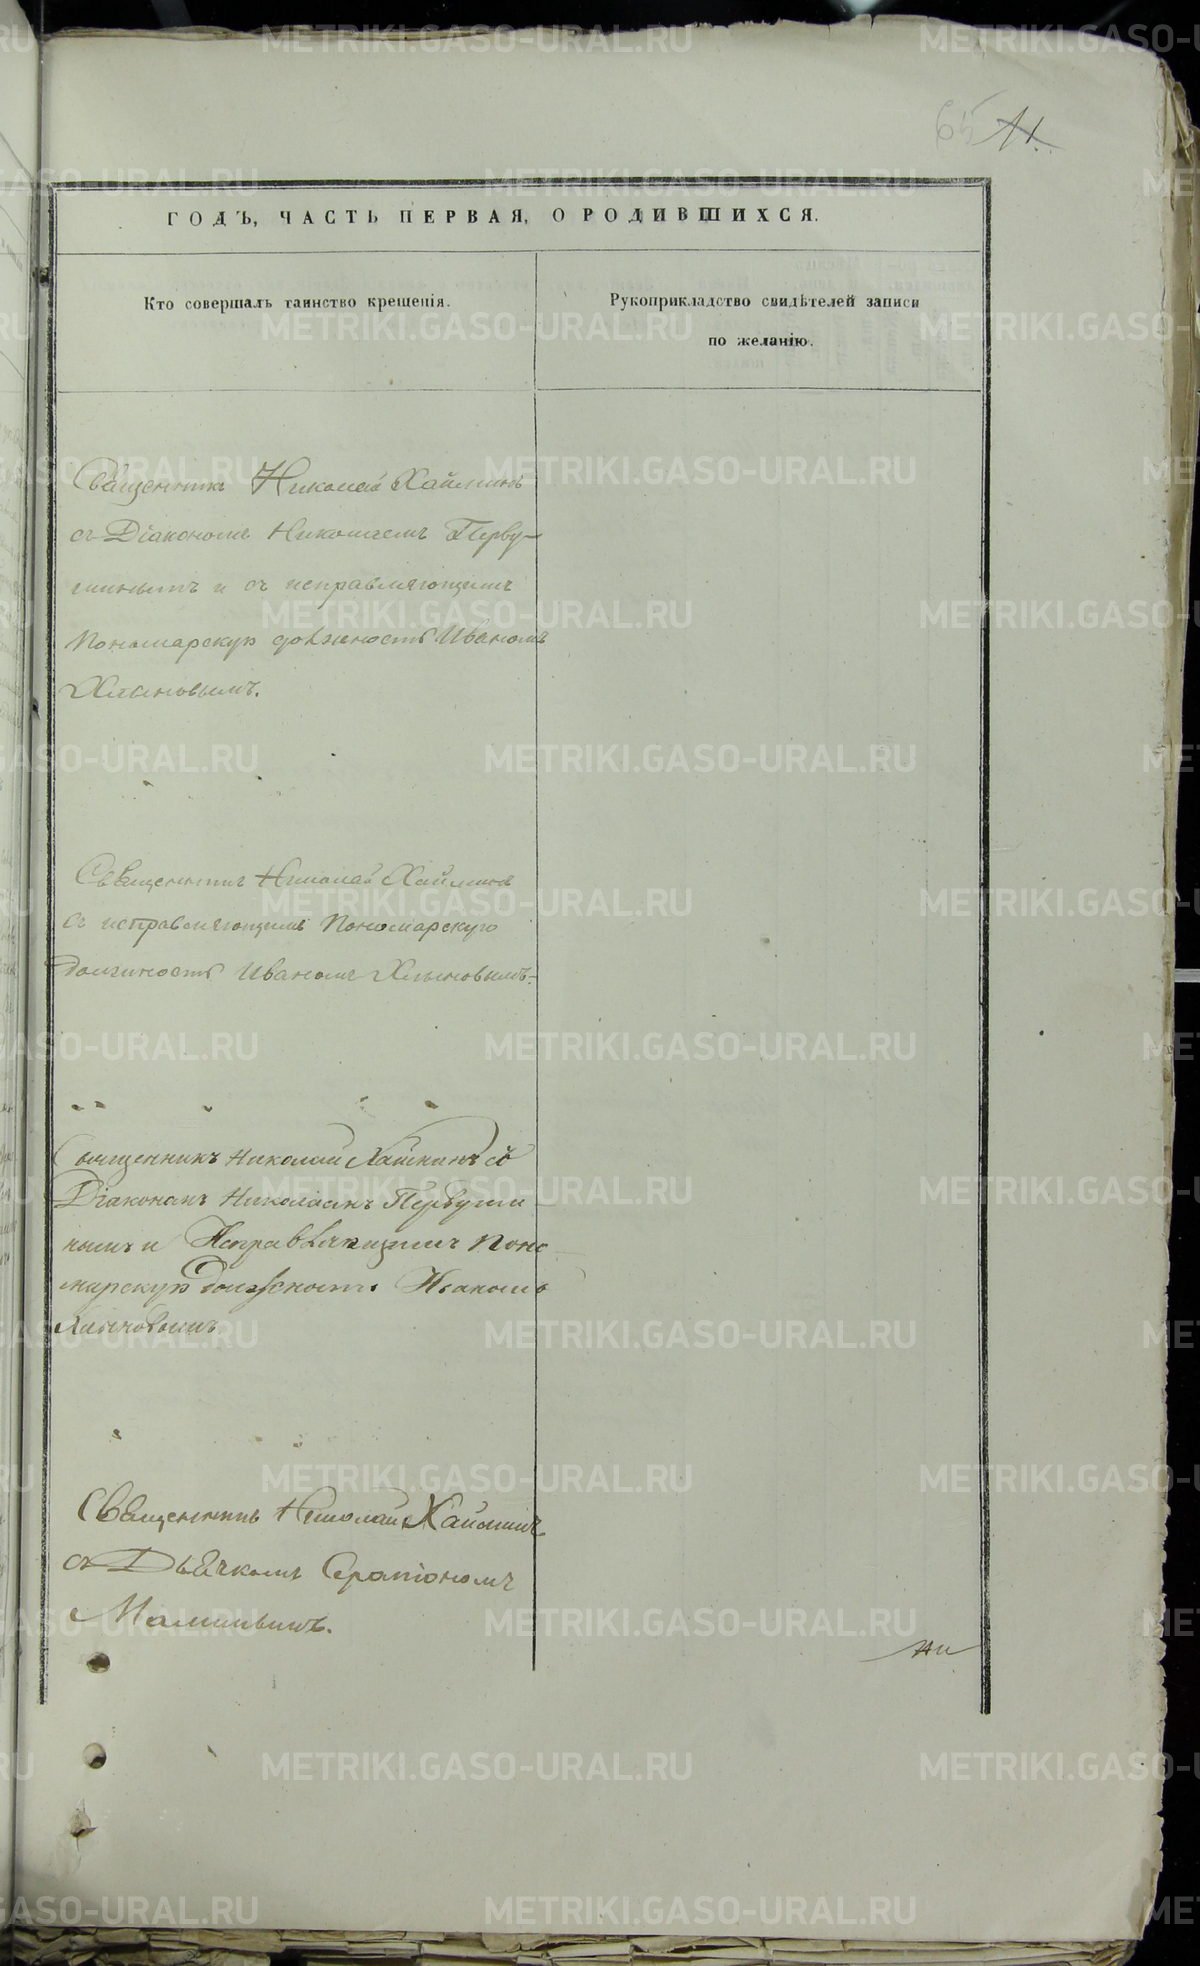 65 11.
ГОДЪ, ЧАСТЬ ПЕРВАЯ, О РОДИВШИХСЯ.
Кто совершалъ таинство крещенія.
Рукоприкладство свидѣтелей записи
по желанію.
Священникъ Николай Хайминъ
съ Діакономъ Николаемъ Перву-
шинымъ и съ исправляющимъ
Пономарскую должность Иваномъ
Хлыновымъ.
Священникъ Николай Хайминъ
съ исправляющимъ Пономарскую
должность Иваномъ Хлыновымъ.
Священникъ Николай Хайминъ съ
Діакономъ Николаемъ Первуши
нымъ и Исправляющимъ Поно
марскую должность Иваномъ
Хлыновымъ
Священникъ Николай Хайминъ
съ Дьячкомъ Серапіономъ
METRIKI.GASO-URAL.RU